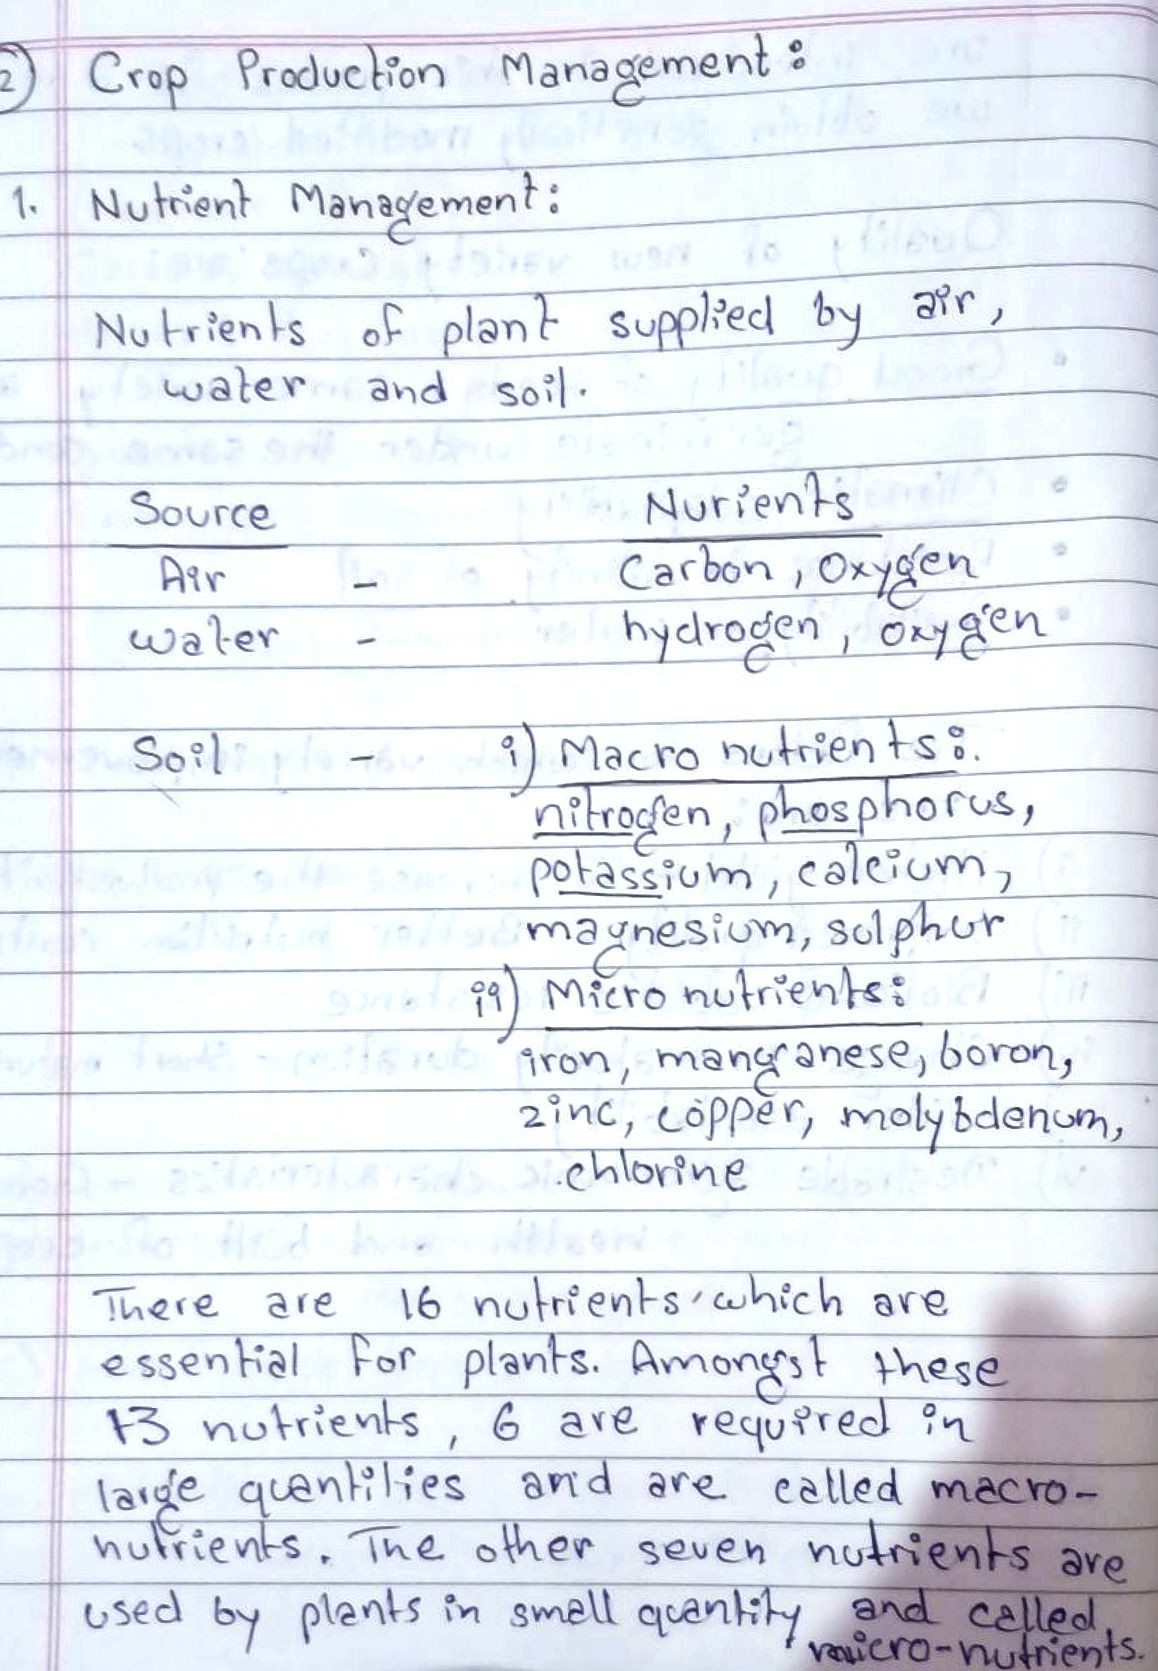 2) Crop Production Management:
1. Nutrient Management:
Nutrients of plant supplied by air,
water and soil.
Source Nurients
Air - Carbon, Oxygen
water - hydrogen, oxygen
Soil - i) Macro nutrients:
nitrogen, phosphorus,
potassium, calcium,
magnesium, sulphur
ii) Micro nutrients:
iron, manganese, boron,
zinc, copper, molybdenum,
chlorine
There are 16 nutrients which are
essential for plants. Amongst these
13 nutrients, 6 are required in
large quantities and are called macro-
nutrients. The other seven nutrients are
used by plants in small quantity and called
micro-nutrients.